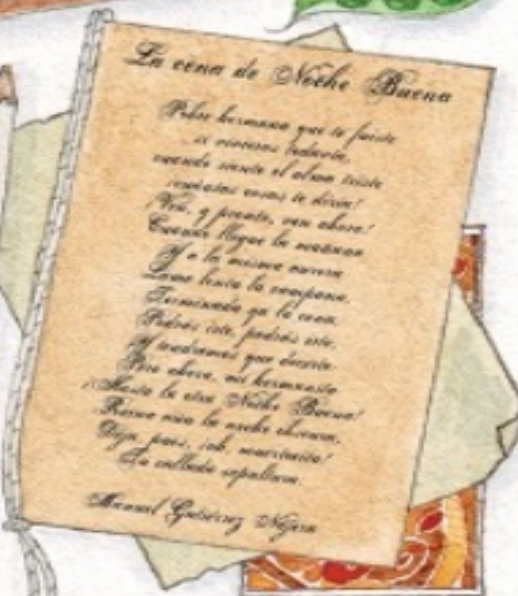 La cena de Noche Buena
Pobre hermana que te fuiste
si vivieras todavía,
cuando siente el alma triste
cosas te diría!
Ven, y pronto, ven ahora!
Cuando llegue la mañana
Y a la misma
la campana,
Terminada ya la cena,
Podrás irte, podrás irte,
Y tendremos que decirte
Pero ahora, mi hermanita
¡Hasta la otra Noche Buena!
Reina aún la noche obscura,
Deja, pues, ¡oh, muertecita!
Tu callada sepultura.
Manuel Gutiérrez Nájera